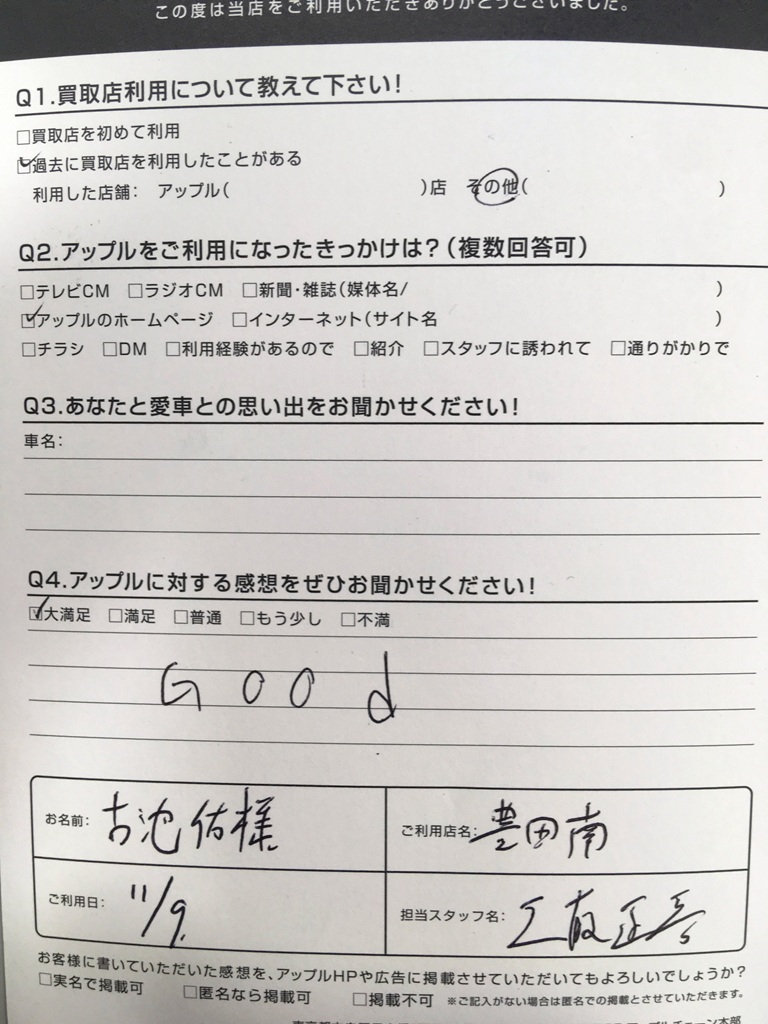 この度は当店をご利用いただきありがとうございました。
Q1.買取店利用について教えて下さい!
□買取店を初めて利用
☑過去に買取店を利用したことがある
利用した店舗: アップル( )店 その他( )
Q2.アップルをご利用になったきっかけは?(複数回答可)
□テレビCM □ラジオCM □新聞・雑誌(媒体名/ )
☑アップルのホームページ □インターネット(サイト名 )
□チラシ □DM □利用経験があるので □紹介 □スタッフに誘われて □通りがかりで
Q3.あなたと愛車との思い出をお聞かせください!
車名:
Q4.アップルに対する感想をぜひお聞かせください!
☑大満足 □満足 □普通 □もう少し □不満
GOOd
お名前: 古池佑様 ご利用店名: 豊田南
ご利用日: 11/9. 担当スタッフ名:
お客様に書いていただいた感想を、アップルHPや広告に掲載させていただいてもよろしいでしょうか?
□実名で掲載可 □匿名なら掲載可 □掲載不可 ※ご記入がない場合は匿名での掲載とさせていただきます。